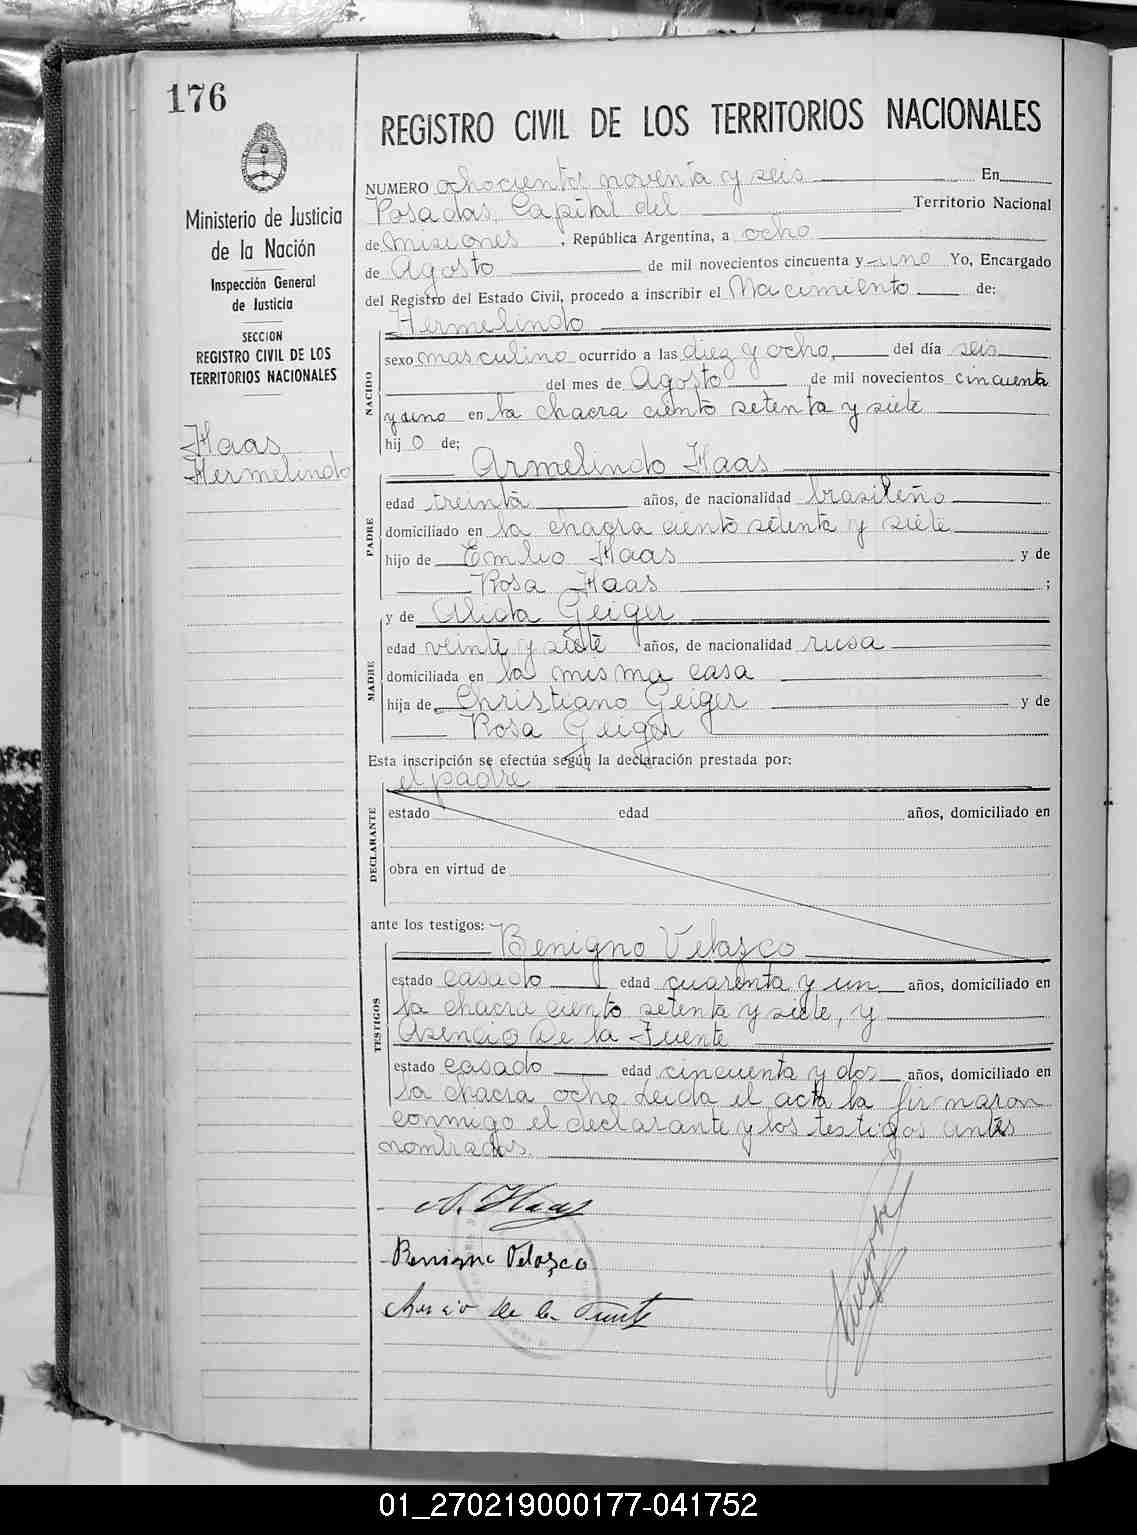 176
Ministerio de Justicia
de la Nación
Inspección General
de Justicia
SECCION
REGISTRO CIVIL DE LOS
TERRITORIOS NACIONALES
Haas
Hermelindo
REGISTRO CIVIL DE LOS TERRITORIOS NACIONALES
NUMERO ochocientos noventa y seis En
Posadas, Capital del Territorio Nacional
de Misiones, República Argentina, a ocho
de Agosto de mil novecientos cincuenta y uno Yo, Encargado
del Registro del Estado Civil, procedo a inscribir el Nacimiento de:
Hermelindo
NACIDO
sexo masculino ocurrido a las diez y ocho, del día seis
del mes de Agosto de mil novecientos cincuenta
y uno en la chacra ciento setenta y siete
hijo de;
Armelindo Haas
PADRE
edad treinta años, de nacionalidad brasileño
domiciliado en la chacra ciento setenta y siete
hijo de Emilio Haas y de
Rosa Haas ;
y de Alida Geiger
MADRE
edad veinte y siete años, de nacionalidad rusa
domiciliada en la misma casa
hija de Christiano Geiger y de
Rosa Geiger
Esta inscripción se efectúa según la declaración prestada por:
el padre
DECLARANTE
estado edad años, domiciliado en
obra en virtud de
ante los testigos:
Benigno Velazco
TESTIGOS
estado casado edad cuarenta y un años, domiciliado en
la chacra ciento setenta y siete, y
Asencio De la Fuente
estado casado edad cincuenta y dos años, domiciliado en
la chacra ocho Leida el acta la firmaron
conmigo el declarante y los testigos antes
nombrados.
A. Haas
Benigno Velazco
Asencio De la Fuente
01_270219000177-041752